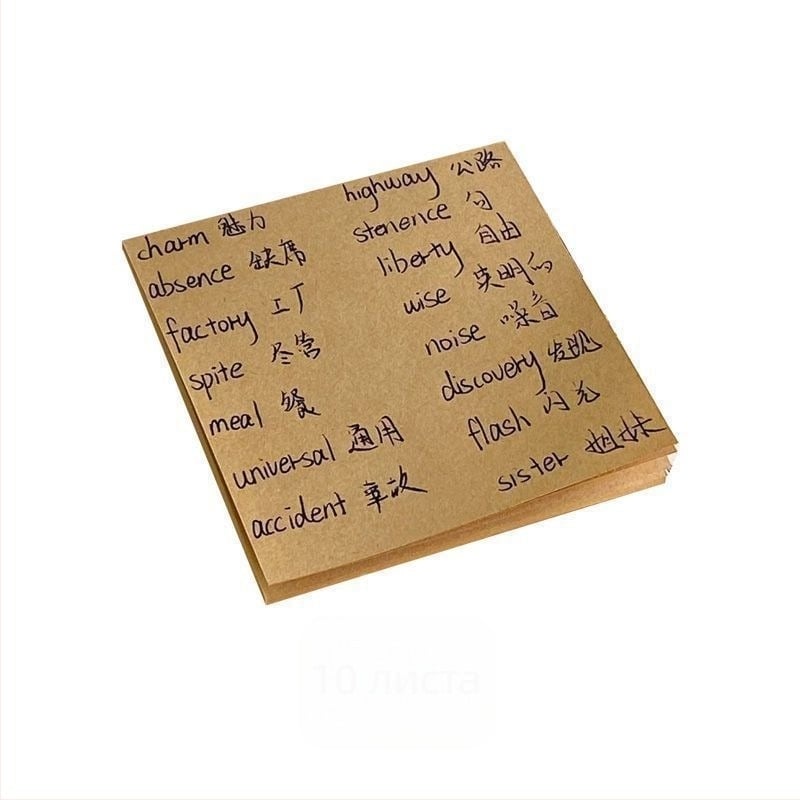 charm 魅力
absence 缺席
factory 工厂
spite 尽管
meal 餐
universal 通用
accident 事故
highway 公路
stenence 句
liberty 自由
wise 英明的
noise 噪音
discovery 发现
flash 闪光
sister 姐妹
10 листа